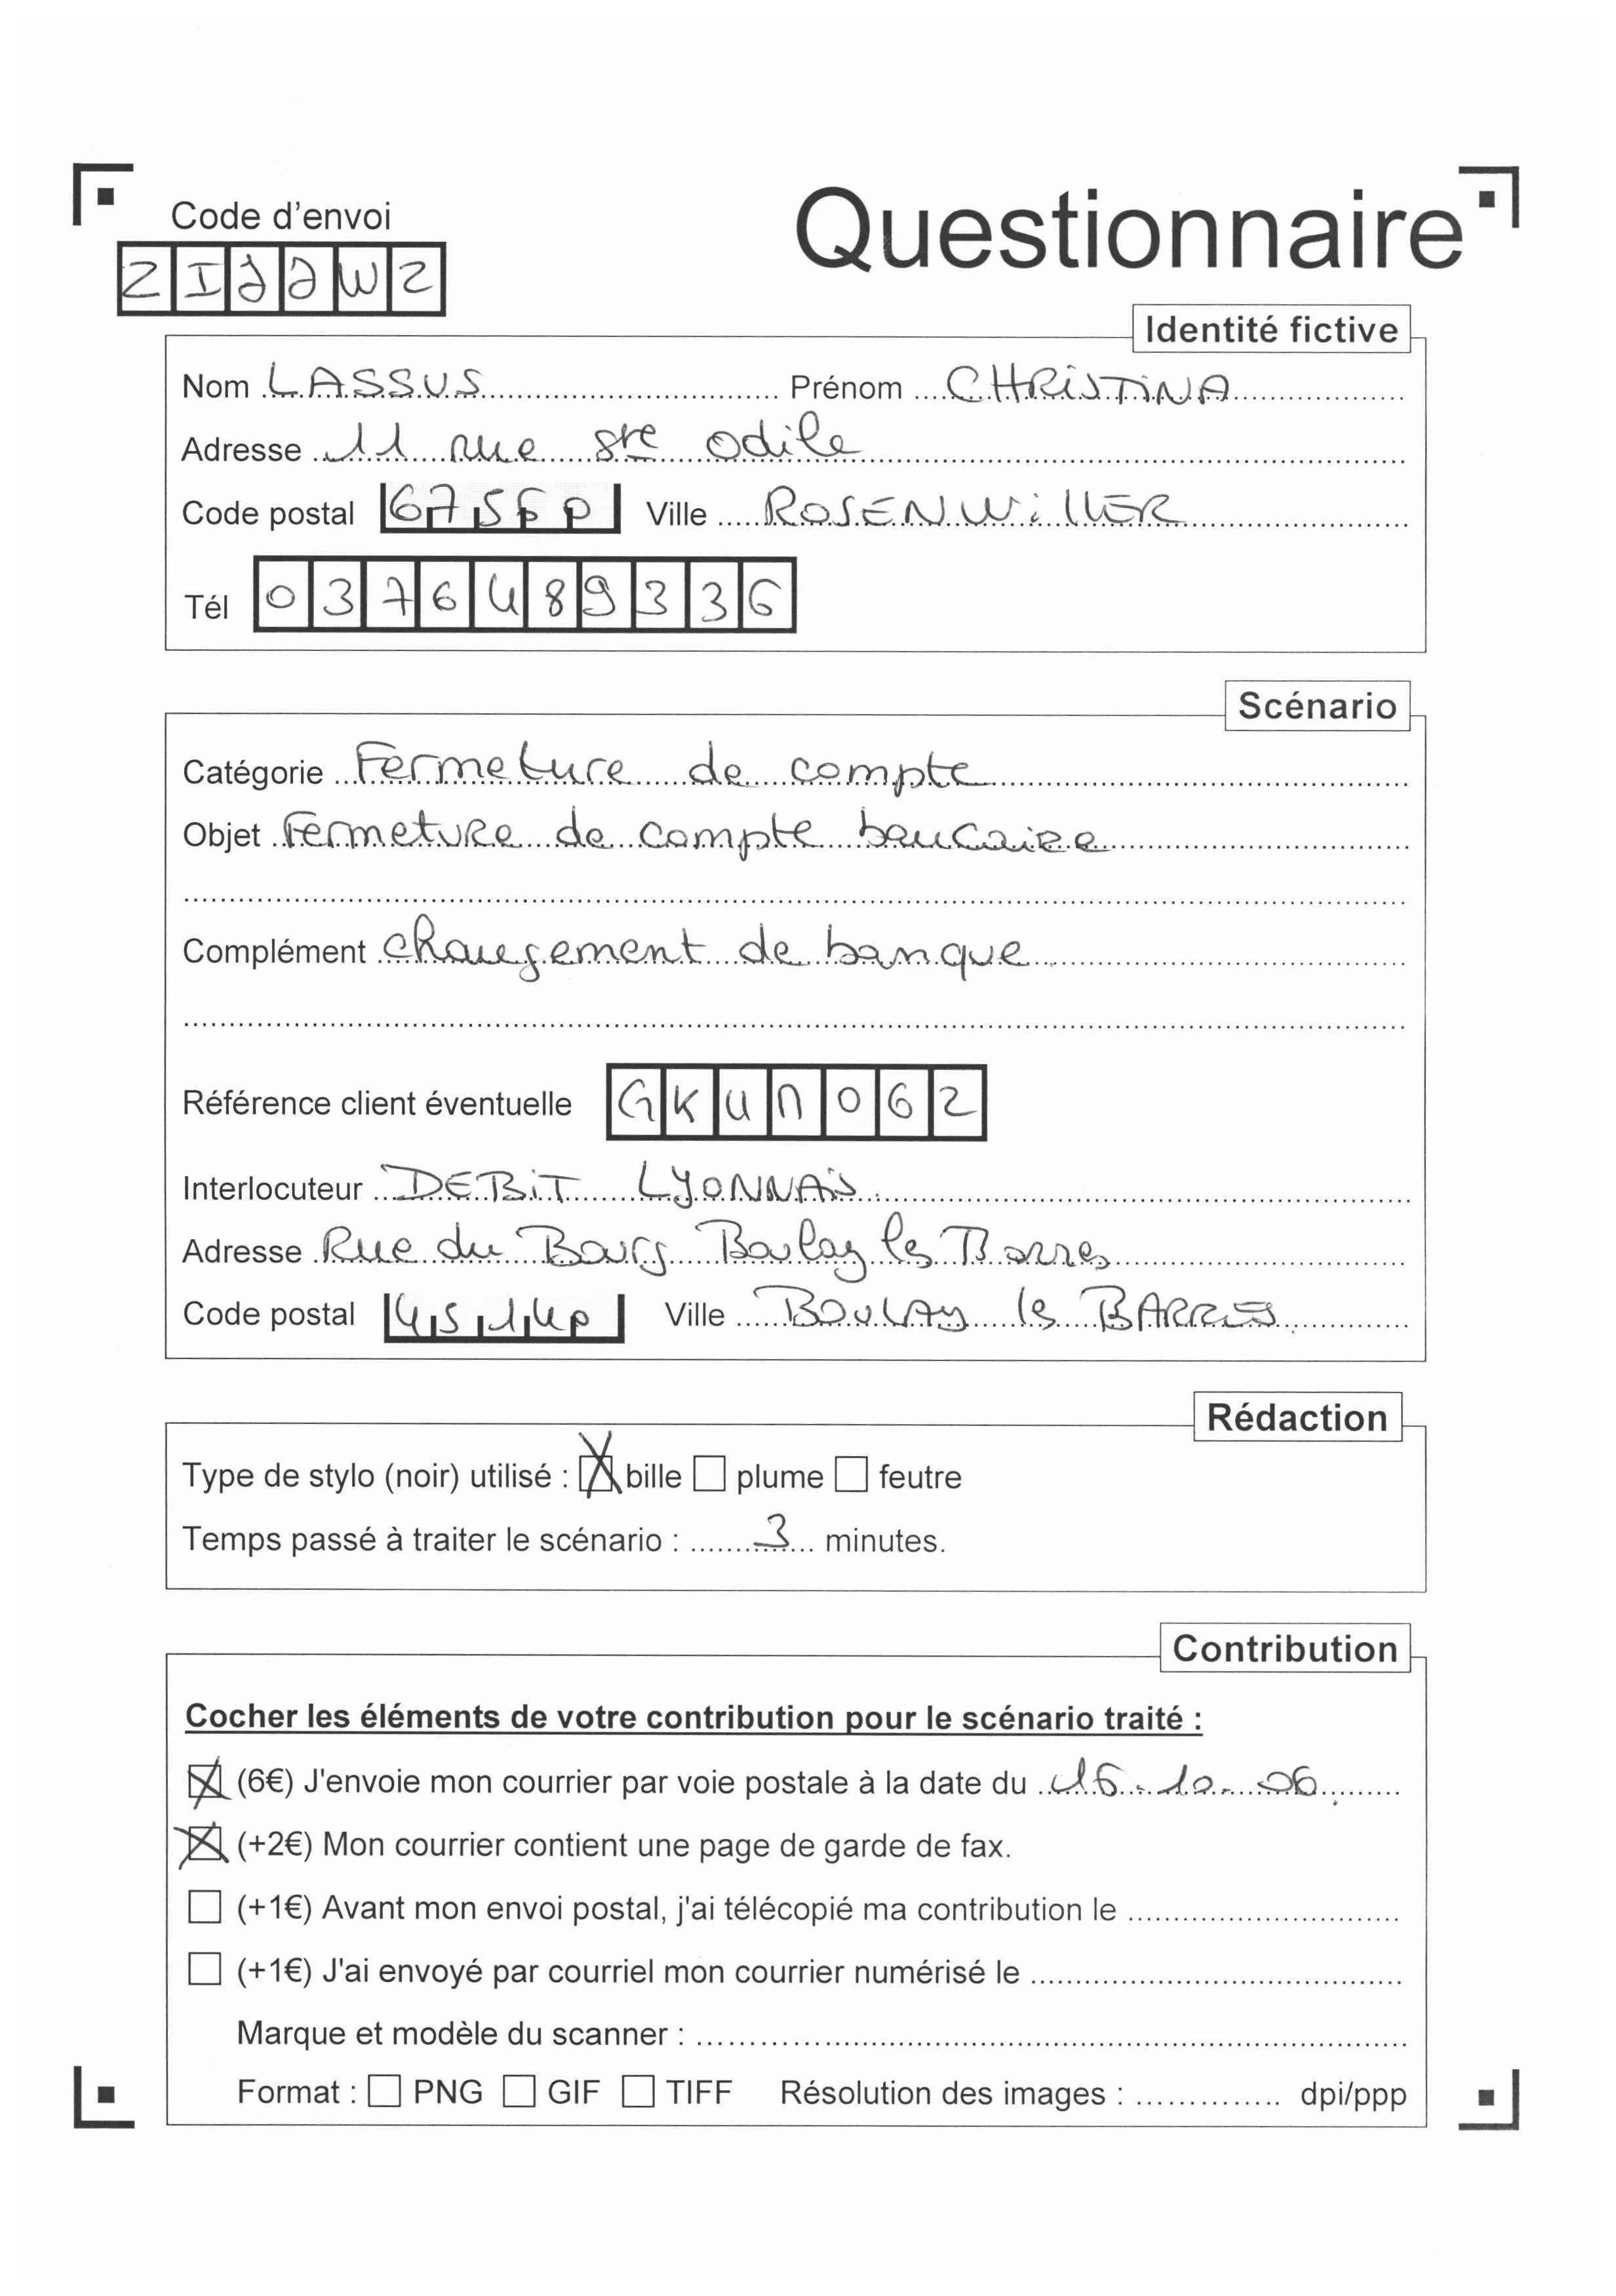 Code d'envoi
Questionnaire
ZIJJWZ
Identité fictive
Nom LASSUS Prénom CHRISTINA
Adresse 11 rue ste odile
Code postal 67560 Ville ROSENWiLLER
Tél 0376489336
Scénario
Catégorie Fermeture de compte
Objet Fermeture de compte bancaire
Complément changement de banque
Référence client éventuelle GKUN062
Interlocuteur DEBiT LYONNAiS
Adresse Rue du Bourg Boulay les Barres
Code postal 45140 Ville BOULAY les BARRES
Rédaction
Type de stylo (noir) utilisé : bille plume feutre
Temps passé à traiter le scénario : 3 minutes.
Contribution
Cocher les éléments de votre contribution pour le scénario traité :
(6€) J'envoie mon courrier par voie postale à la date du 16.10.06
(+2€) Mon courrier contient une page de garde de fax.
(+1€) Avant mon envoi postal, j'ai télécopié ma contribution le
(+1€) J'ai envoyé par courriel mon courrier numérisé le
Marque et modèle du scanner :
Format : PNG GIF TIFF Résolution des images : dpi/ppp